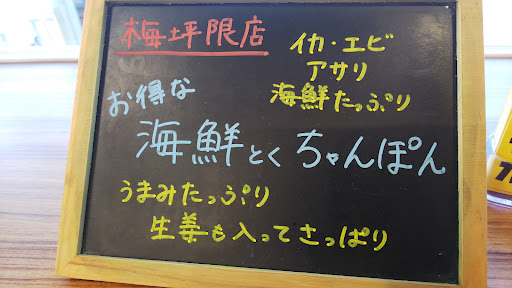 梅坪限店
イカ・エビ
アサリ
海鮮たっぷり
お得な
海鮮とくちゃんぽん
うまみたっぷり
生姜も入ってさっぱり